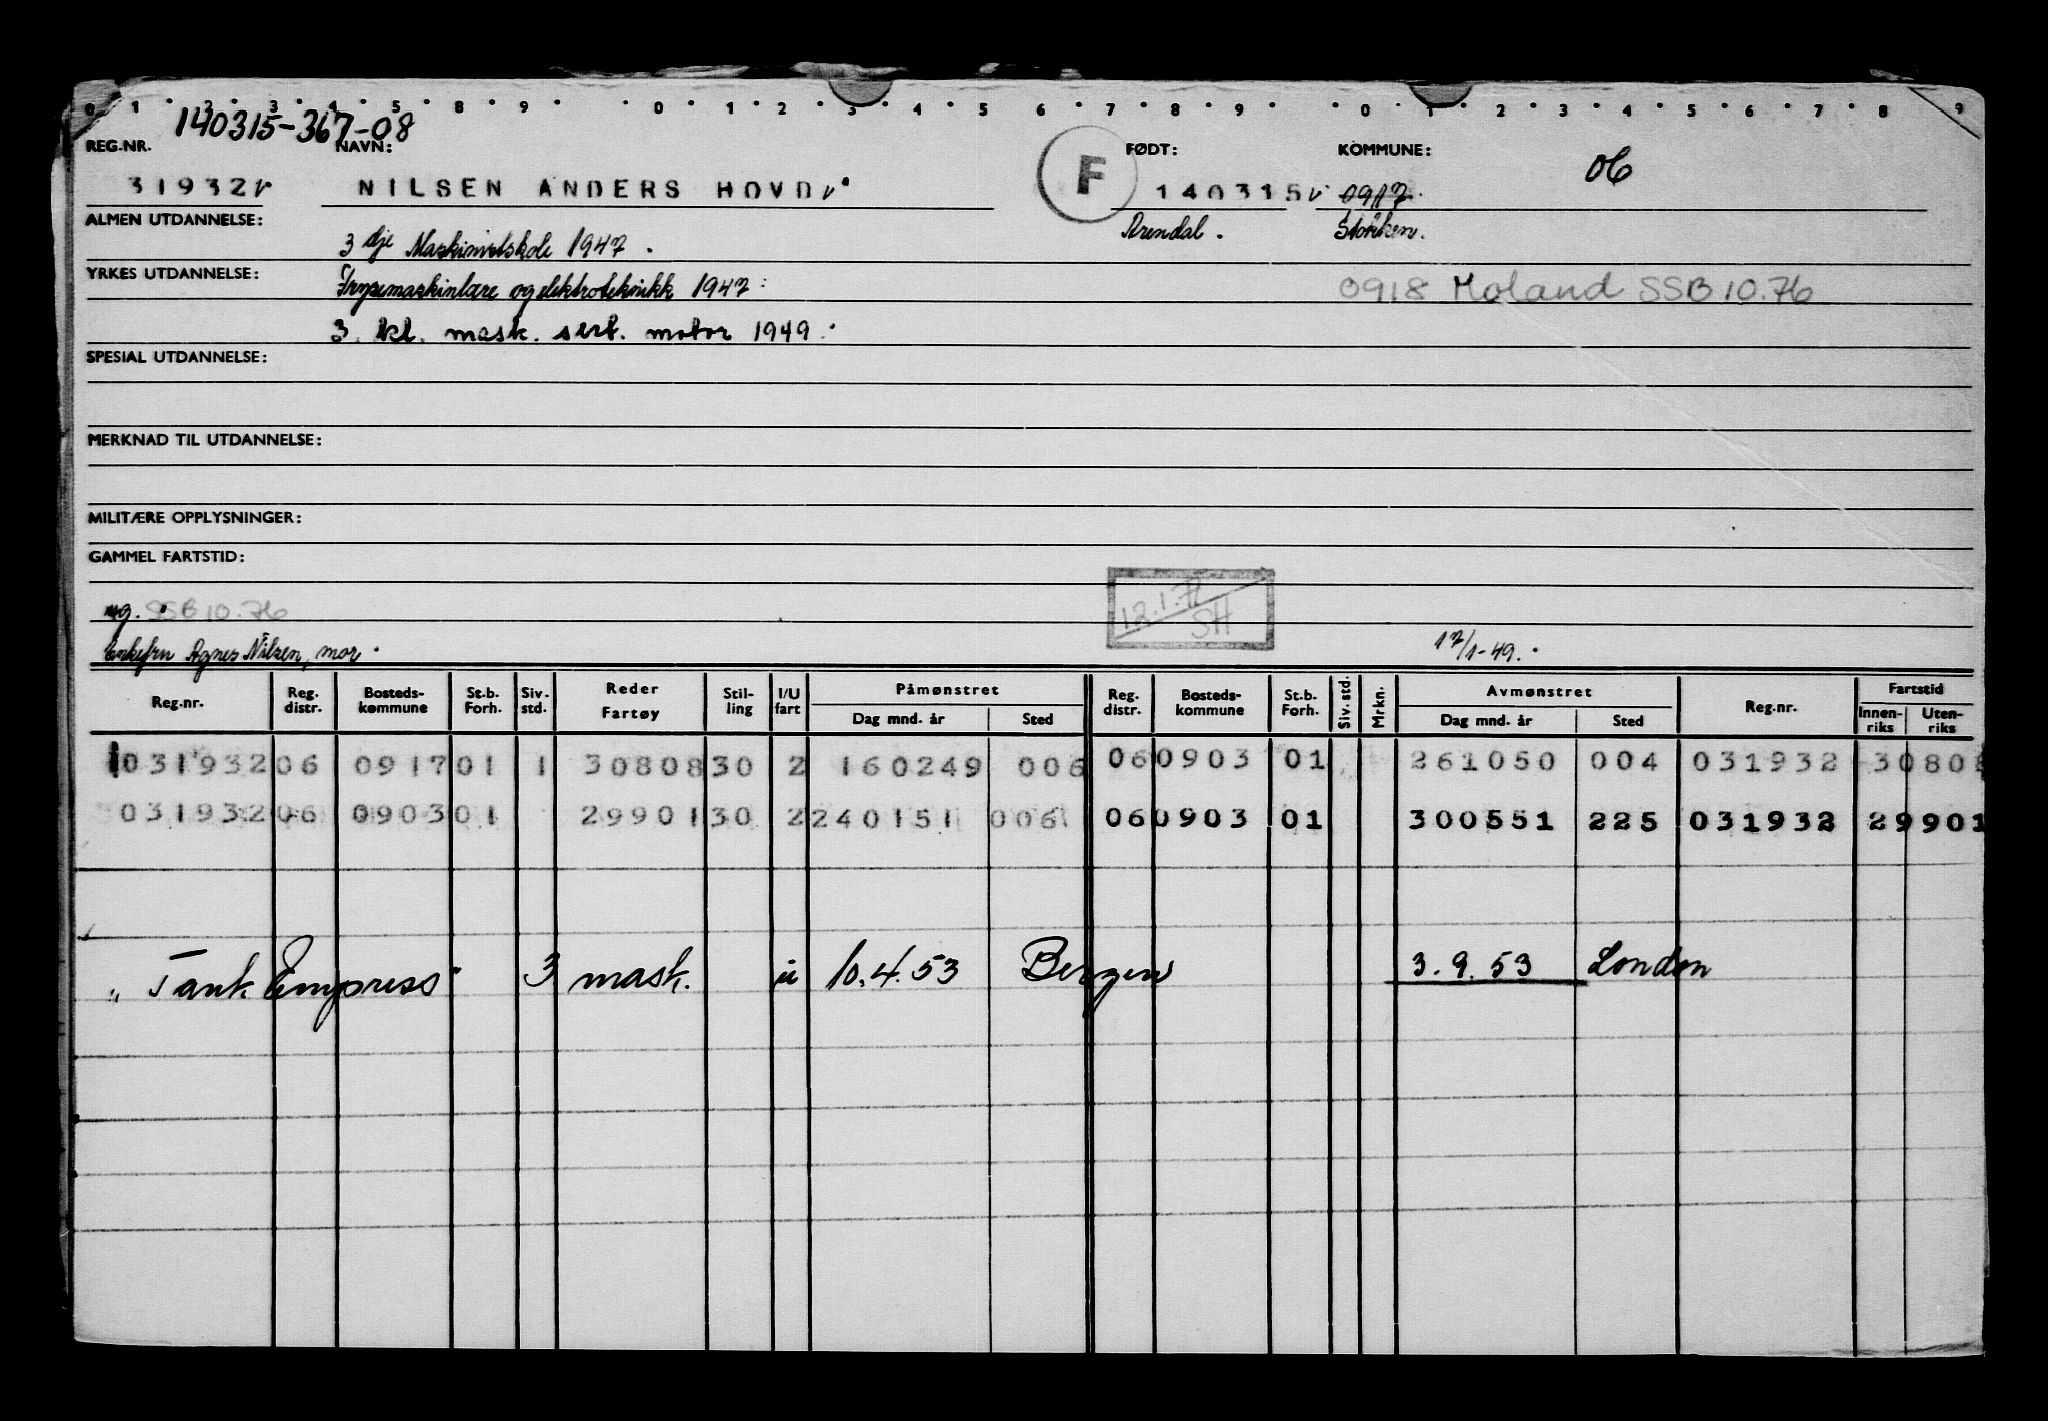 0 1 2 3 4 5 8 9 0 1 2 3 4 5 6 7 8 9 0 1 2 3 4 5 6 7 8 9
140315-367-08
REG.NR. NAVN: F FØDT: KOMMUNE: 06
31932 NILSEN ANDERS HOVD 140315 0917
ALMEN UTDANNELSE: Arendal. Stokken.
3 dje Maskinistskole 1947.
YRKES UTDANNELSE: Frysemaskinlære og elektroteknikk 1947 0918 Moland SSB 10.76
3. kl. mask. sert. motor 1949.
SPESIAL UTDANNELSE:
MERKNAD TIL UTDANNELSE:
MILITÆRE OPPLYSNINGER:
GAMMEL FARTSTID:
ug. SSB 10.76 12.1.77 SH
Enkefru Agnes Nilsen, mor. 17/1-49.
Reg.nr. Reg. distr. Bosteds- kommune St.b. Forh. Siv. std. Reder Fartøy Stil- ling I/U fart Påmønstret Dag mnd. år Sted Reg. distr. Bosteds- kommune St.b. Forh. Siv. std. Mrkn. Avmønstret Dag mnd. år Sted Reg.nr. Fartstid Innen- riks Uten- riks
031932 06 0917 01 1 30808 30 2 160249 006 06 0903 01 261050 004 031932 30808
031932 06 0903 01 29901 30 2 240151 006 06 0903 01 300551 225 031932 29901
"Tank Empress" 3 mask. u 10.4.53 Bergen 3.9.53 London